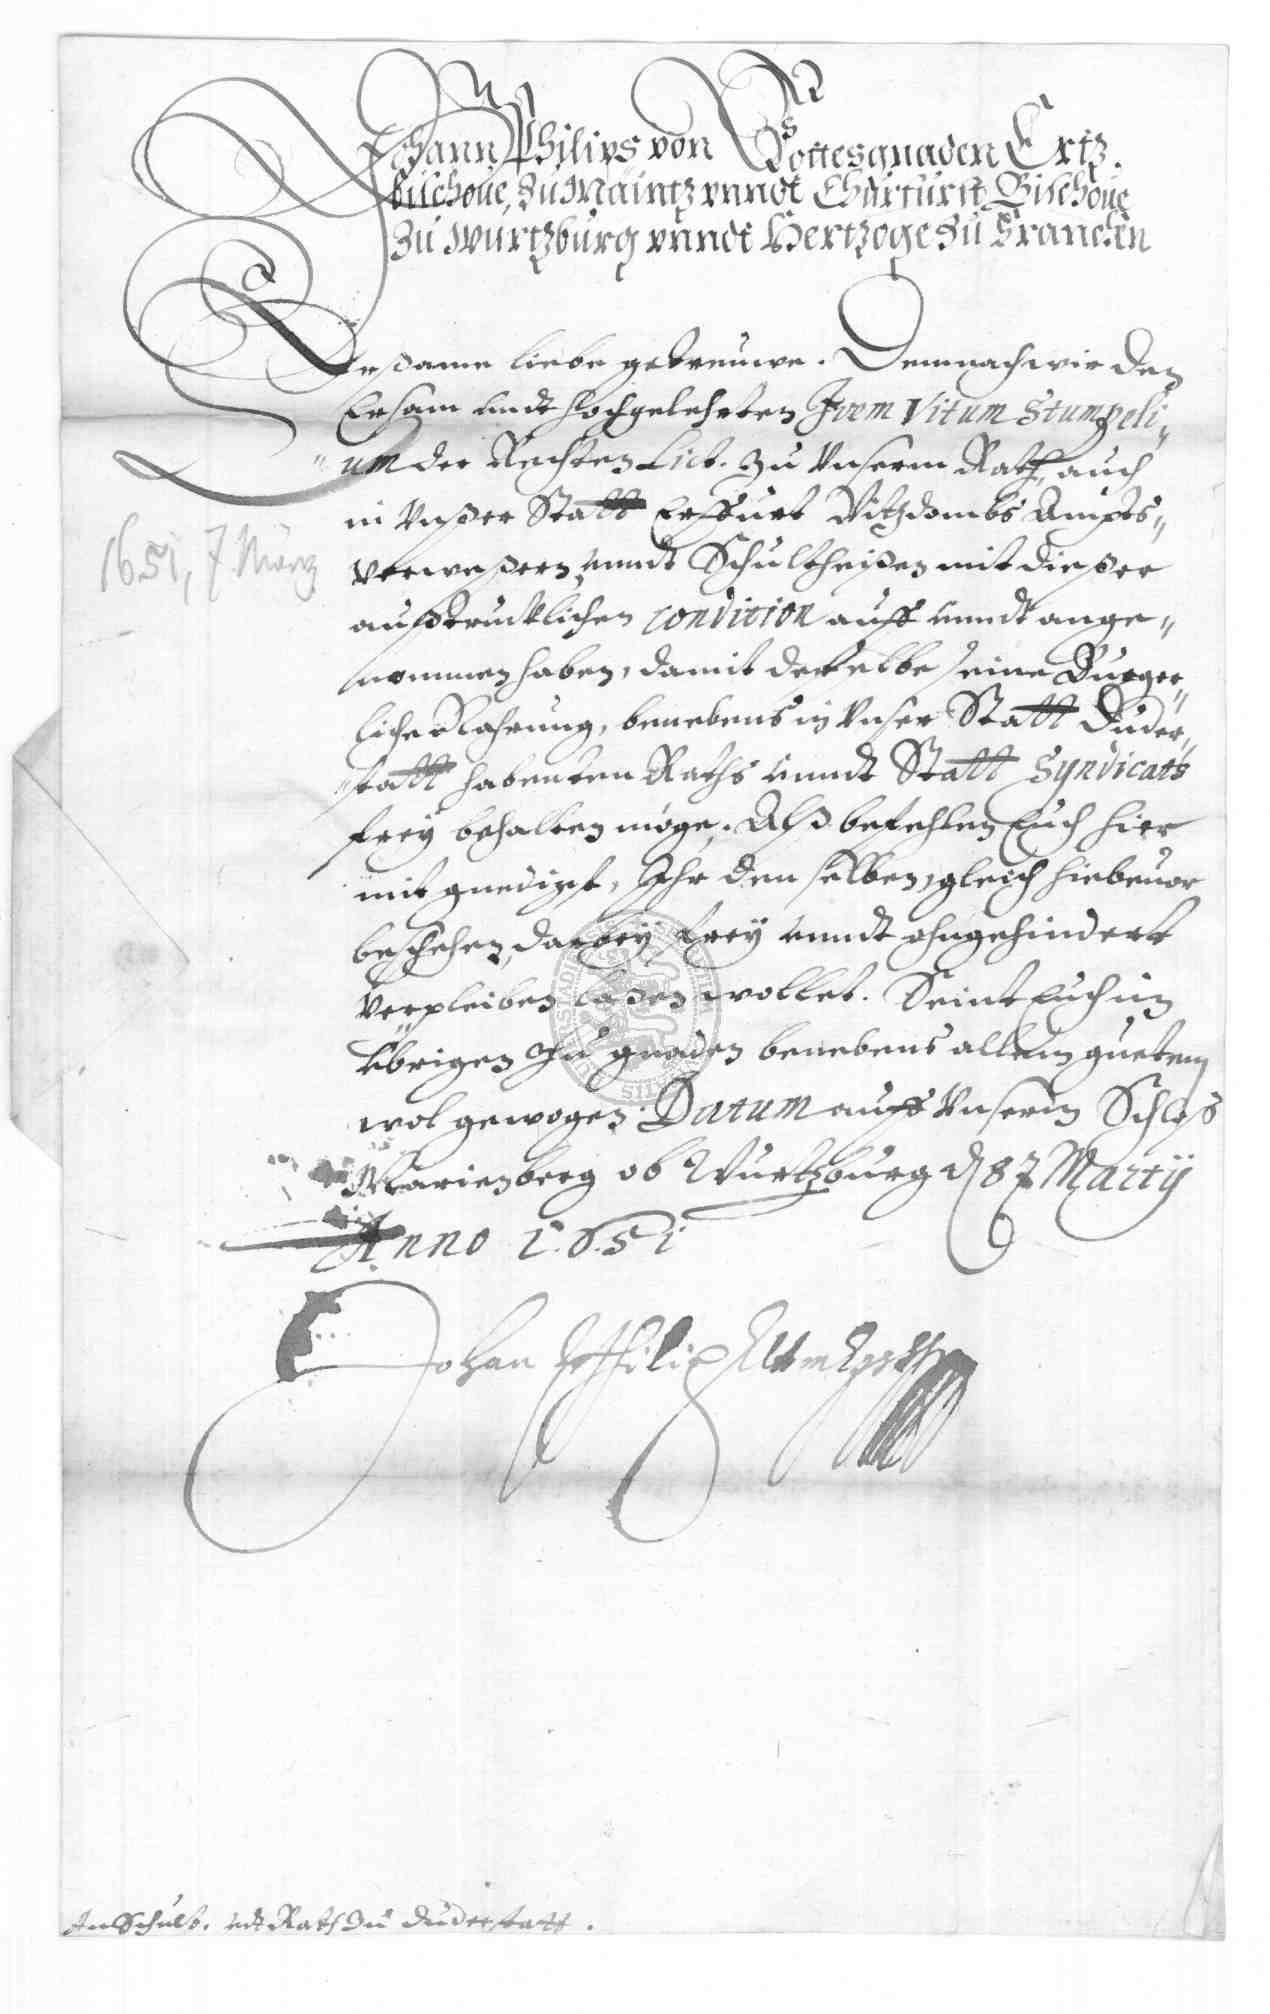 Johann Philips von Gottes gnaden Ertz.
bischoue, zu Maintz vnndt Churfürst, Bischoue
zu Wurtzburg vnndt Hertzoge zu Francken
Ersame liebe getreuwe. Demnach wir den
Ersam undt hochgelehrten Vitum Stumpeli„
„um der Rechten Lict. zu Vnserm Rath, auch
in Vnser Statt Erffurt Vitzdombs Ampts„
verwesern, unndt Schultheißen mit dießer
außtrucklichen condition auff unndt ange„
nommen haben, damit derselbe seine Burger„
liche Nahrung, benebens in Vnser Statt Duder„
„statt habenten Raths unndt Statt Syndicats
frey behalten möge, Alß befehlen Euch hier
mit gnedigst, Ihr den selben, gleich hiebeuor
beschehen, darbey frey unndt ohngehindert
Verpleiben laßen wollet. Seint Euch im
übrigen zu gnaden benebens allem guetem
wol gewogen. Datum auff Vnserm Schloß
Marienberg ob Wurtzburg d 7 Martij
Anno 1651
1651, 7 März
Johan Philip
An Schult. udt Rath zu Duderstatt.